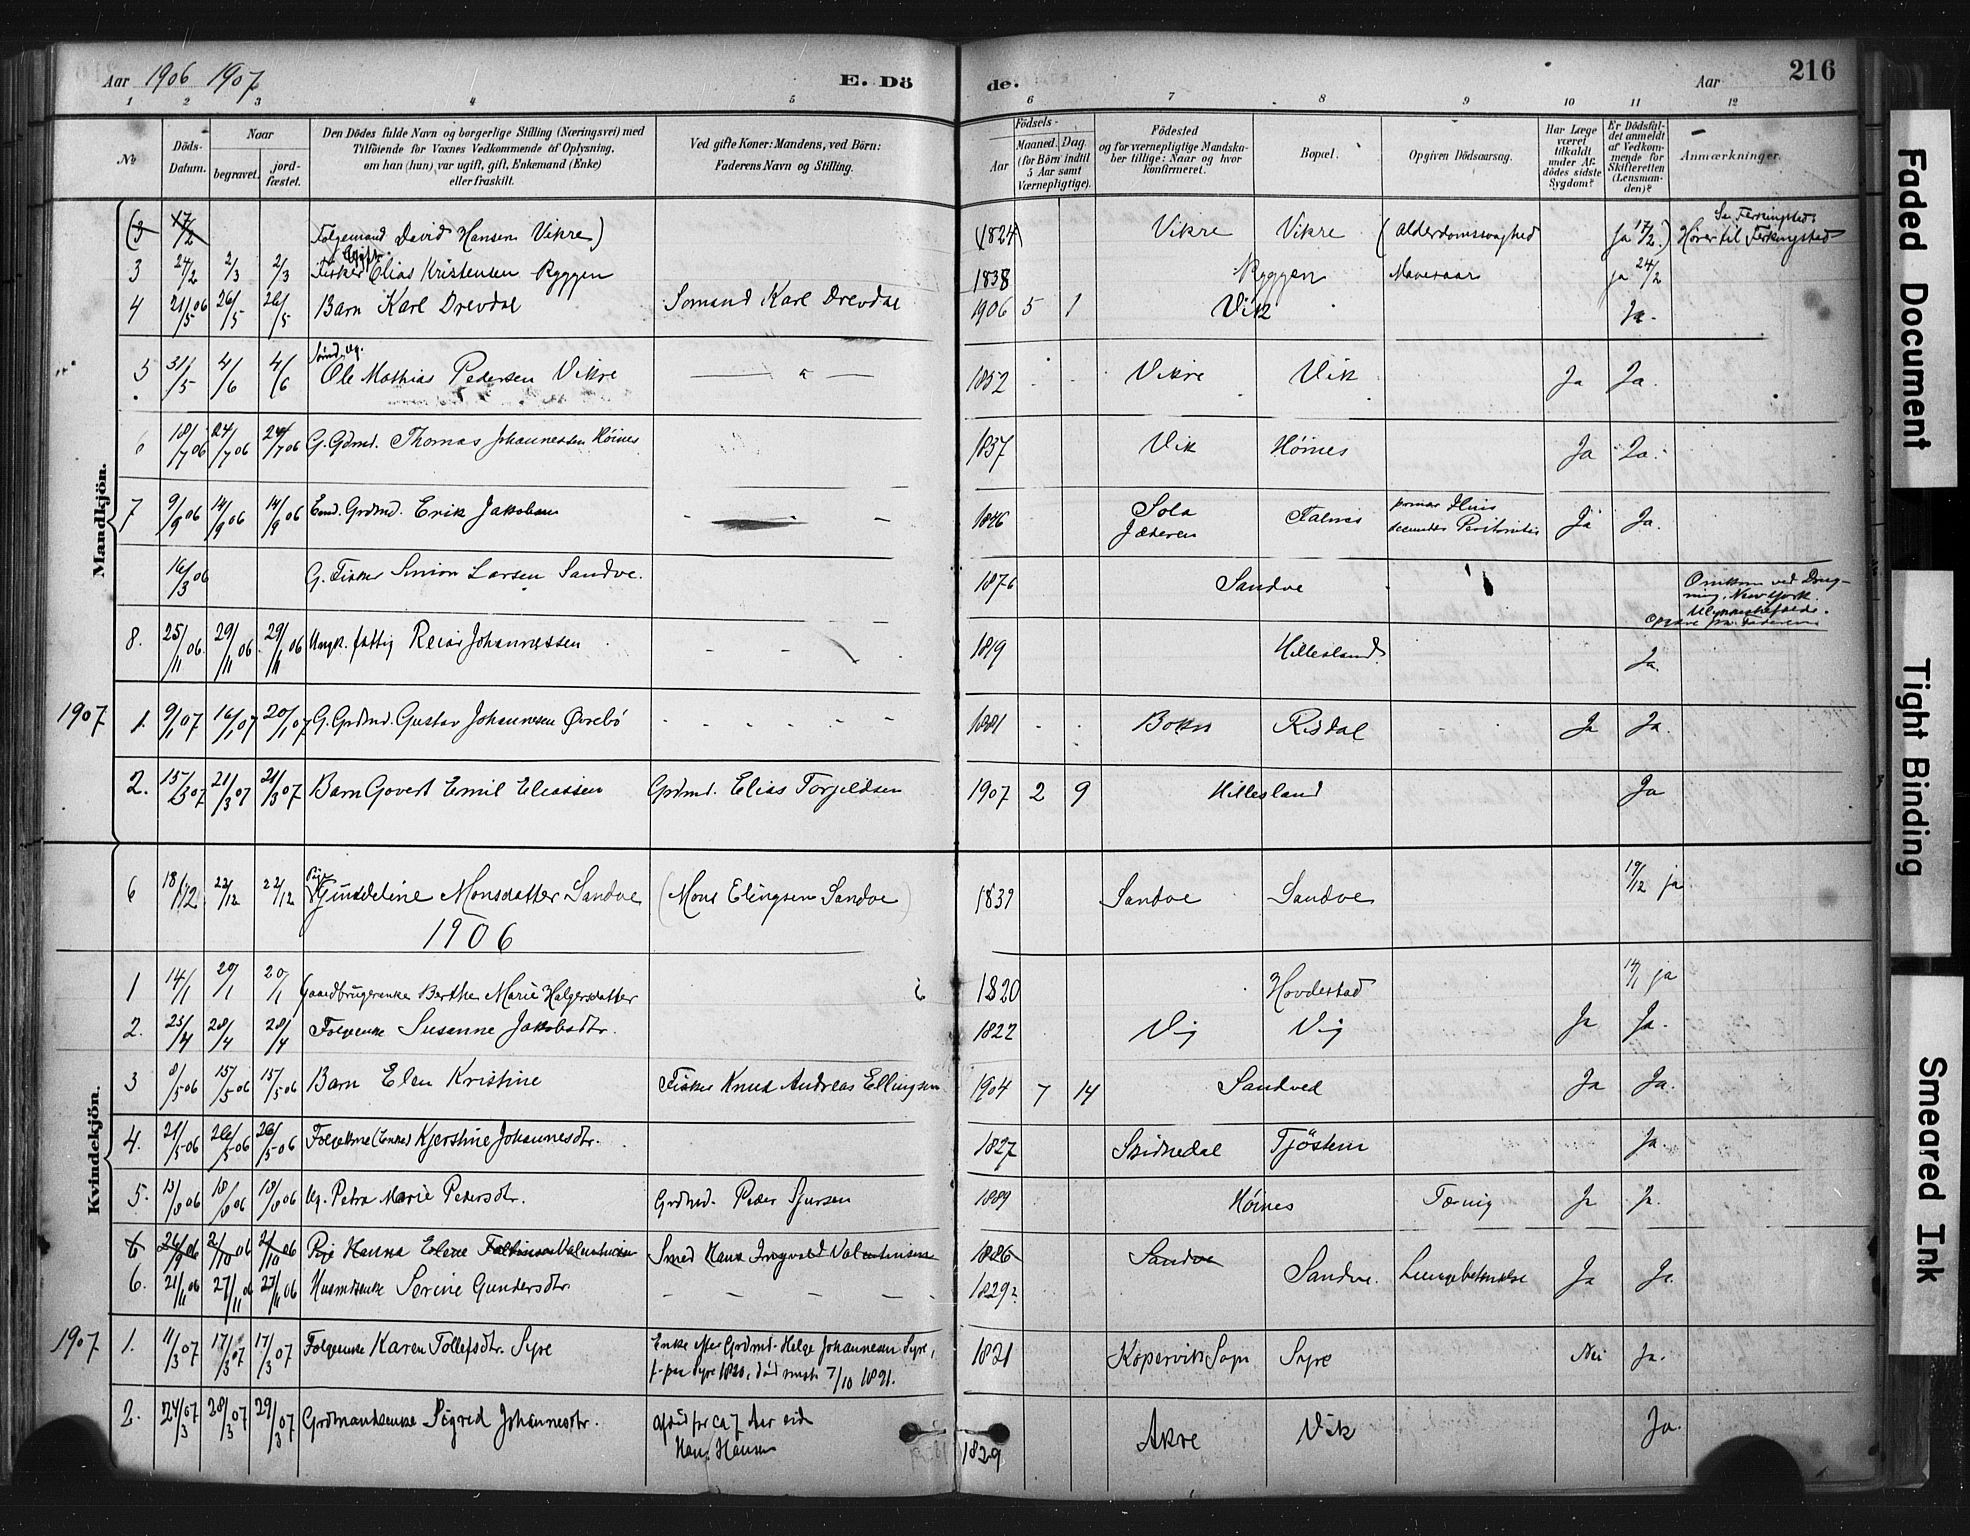 Aar 1906 1907 E. Dö de. Aar 216
1 2 3 4 5 6 7 8 9 10 11 12
No
Döds-Datum.
Naar
begravet.
jord-fæstet.
Den Dödes fulde Navn og borgerlige Stilling (Næringsvei) med
Tilföiende for Voxnes Vedkommende af Oplysning,
om han (hun) var ugift, gift, Enkemand (Enke)
eller fraskilt.
Ved gifte Koner: Mandens, ved Börn:
Faderens Navn og Stilling.
Födsels-
Aar
Maaned.
Dag.
(for Börn indtil
5 Aar samt
Værnepligtige).
Födested
og for værnepligtige Mandska-
ber tillige: Naar og hvor
konfirmeret.
Bopæl.
Opgiven Dödsaarsag.
Har Læge
været
tilkaldt
under Af-
dödes sidste
Sygdom?
Er Dödsfal-
det anmeldt
af Vedkom-
mende for
Skifteretten
(Lensman-
den)?
Anmærkninger.
Mandkjön.
(3 17/2 Folgemand David Hansen Vikre) (1824) Vikre Vikre (Alderdomssvaghed Ja 17/2.) Hører til Ferkingstad
3 24/2 2/3 2/3 Fisker Elias Kristensen Ryggen 1838 Ryggen Mavesaar ja 24/2
4 21/5 06 26/5 26/5 Barn Karl Drevdal Sømand Karl Drevdal 1906 5 1 Vik Ja.
5 31/5 4/6 4/6 Ole Mathias Pedersen Vikre 1852 Vikre Vik Ja Ja.
6 18/7 06 24/7 06 24/7 06 G. Grdmd. Thomas Johannessen Høines 1837 Vik Høines Ja Ja.
7 9/9 06 14/9 06 14/9 06 Emd. Grdmd. Erik Jakobsen 1846 Sola Jæderen Falnes Ja Ja.
16/3 06 G. Fisker Simon Larsen Sandve. 1876 Sandve Omkom ved Drug-
ning, New York.
8. 25/11 06 29/11 06 29/11 06 Ungk. fattig Reiar Johannessen 1819 Hillesland. Ja.
1907 1. 9/1 07 16/1 07 20/1 07 G. Grdmd. Gustav Johannesen Øvrebö 1881 Bokn Risdal Ja Ja.
2. 15/3 07 21/3 07 21/3 07 Barn Govert Emil Eliassen Grdmd. Elias Torgildsen 1907 2 9 Hillesland Ja
Kvindekjön.
6 18/12 22/12 22/12 Gundeline Monsdatter Sandve (Mons Elingsen Sandve) 1839 Sandve Sandve 19/12 ja
1906
1 14/1 20/1 20/1 Gaardbrugerenke Berthe Marie Holgersdatter 1820 Hovdestad 14/1 ja
2. 23/4 28/4 28/4 Folgeenke Susanne Jakobsdtr. 1822 Vig Vig Ja Ja.
3 8/5 06 15/5 06 15/5 06 Barn Elen Kristine Fisker Knud Andreas Ellingsen 1904 7 14 Sandved Ja Ja.
4. 21/5 06 26/5 06 26/5 06 Folgekone (Enke) Kjerstine Johannesdtr. 1827 Skidnedal Tjöstem Ja.
5. 13/8 06 18/8 06 18/8 06 Ug. Petra Marie Petersdtr. Grdmd. Peder Sjursen 1889 Høines Tæring Ja Ja.
6 26/9 06 2/10 06 2/10 06 Pige Hanna Elene Valentinsen Smed Hans Ingvald Valentinsen 1886 Sandve
6. 21/11 06 27/11 06 27/11 06 Husmdsenke Serine Gundersdtr. 1829? Sandve. Lungebetændelse Ja Ja.
1907 1. 11/3 07 17/3 07 17/3 07 Folgeenke Karen Tollefsdtr. Syre Enke efter Grdmd. Helge Johannesen Syre,
f. paa Syre 1820, død 7/10 1891. 1821 Kopervik Sogn Syre Nei Ja.
2. 24/3 07 28/3 07 29/3 07 Grdmandsenke Sigrid Johannesdtr. Afdød for ca 7 Aar sid
Hans Hansen 1829 Akre Vik Ja.
Faded Document
Tight Binding
Smeared Ink